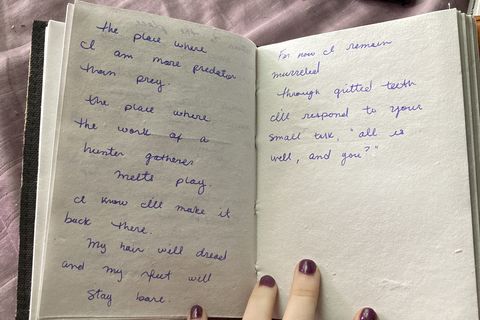 the place where
I am more predator
than prey.
the place where
the work of a
hunter gatherer
melts play.
I know I'll make it
back there.
My hair will dread
and my feet will
stay bare.
For now I remain
muzzled
through gritted teeth
I'll respond to your
small talk, "all is
well, and you?"